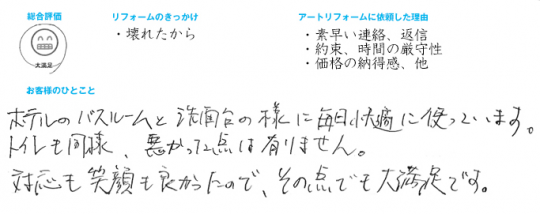 総合評価
大満足
リフォームのきっかけ
・壊れたから
アートリフォームに依頼した理由
・素早い連絡、返信
・約束、時間の厳守性
・価格の納得感、他
お客様のひとこと
ホテルのバスルームと洗面台の様に毎日快適に使っています。
トイレも同様、悪かった点は有りません。
対応も笑顔も良かったので、その点でも大満足です。